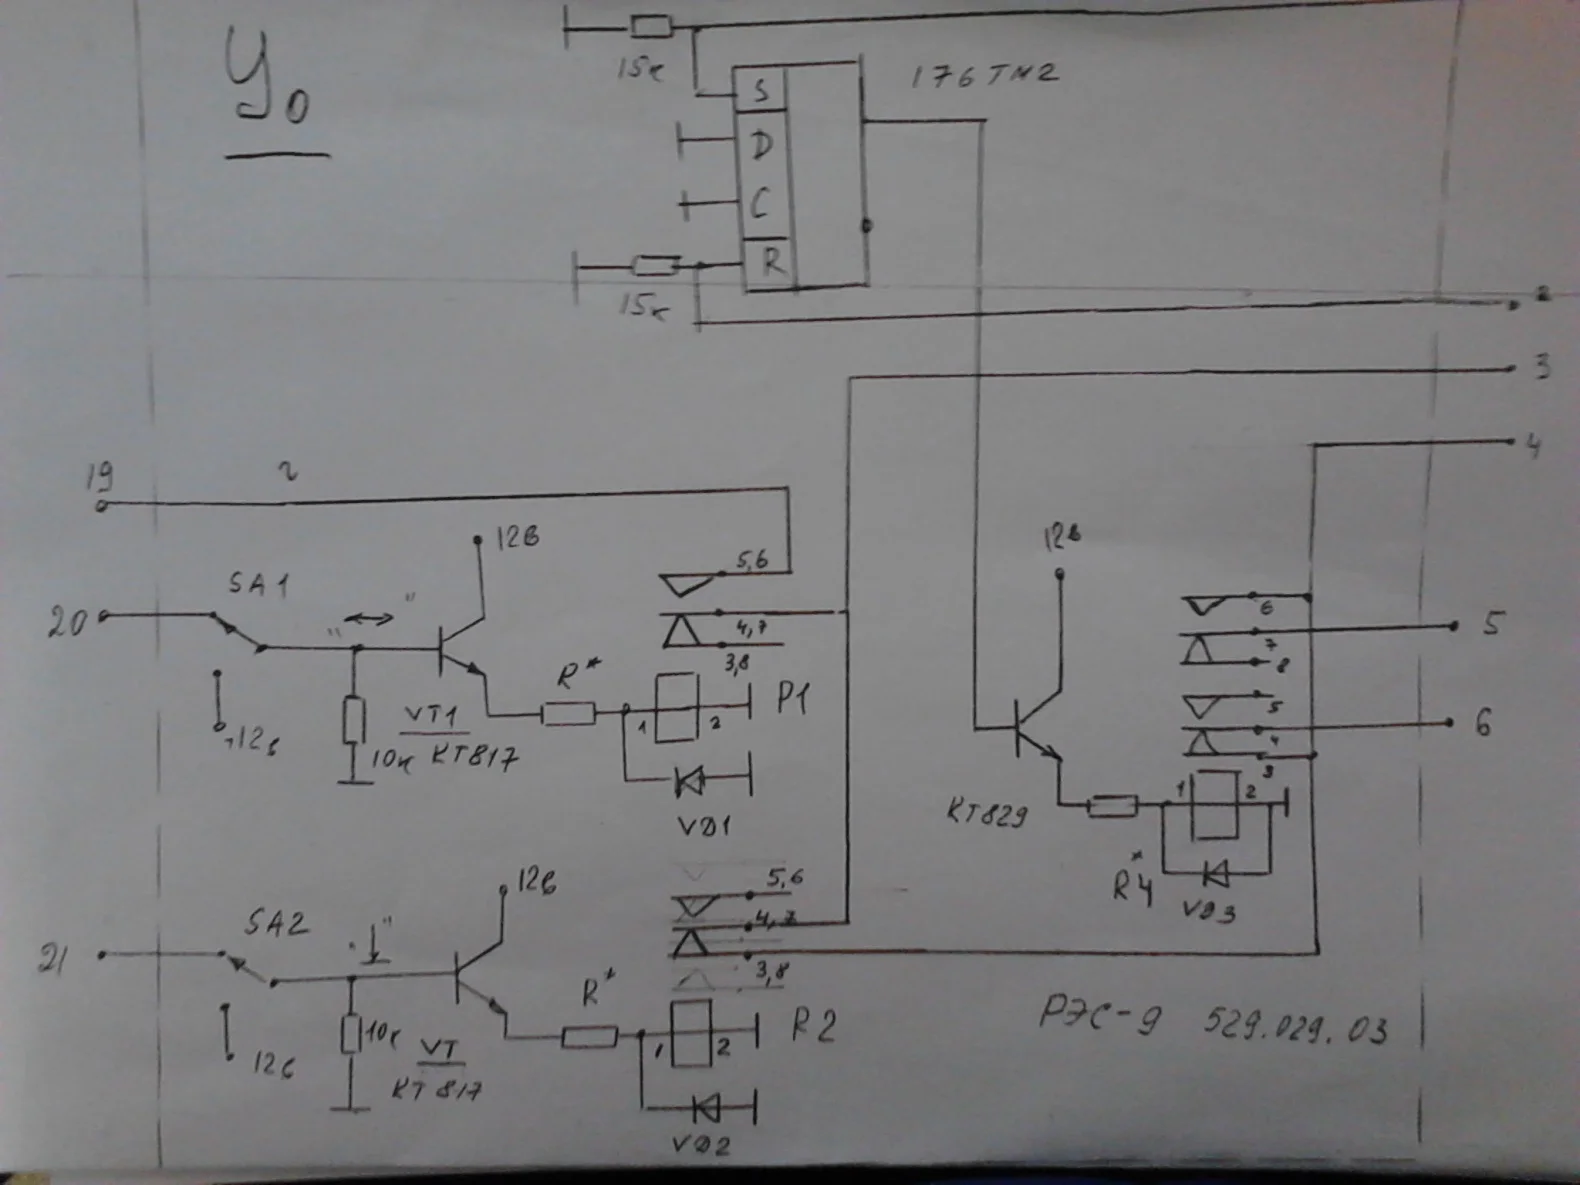 У0
15к
176ТМ2
S
D
C
R
15к
2
3
4
19
12в
5,6
12в
SA1
20
4,7
3,8
6
7
8
5
R*
P1
1
2
5
4
3
6
+12в
10к
VT1
КТ817
VD1
КТ829
1
2
R4*
VD3
12в
5,6
SA2
4,7
21
3,8
R*
R2
1
2
10к
12в
VT
КТ817
VD2
РЭС-9 529.029.03